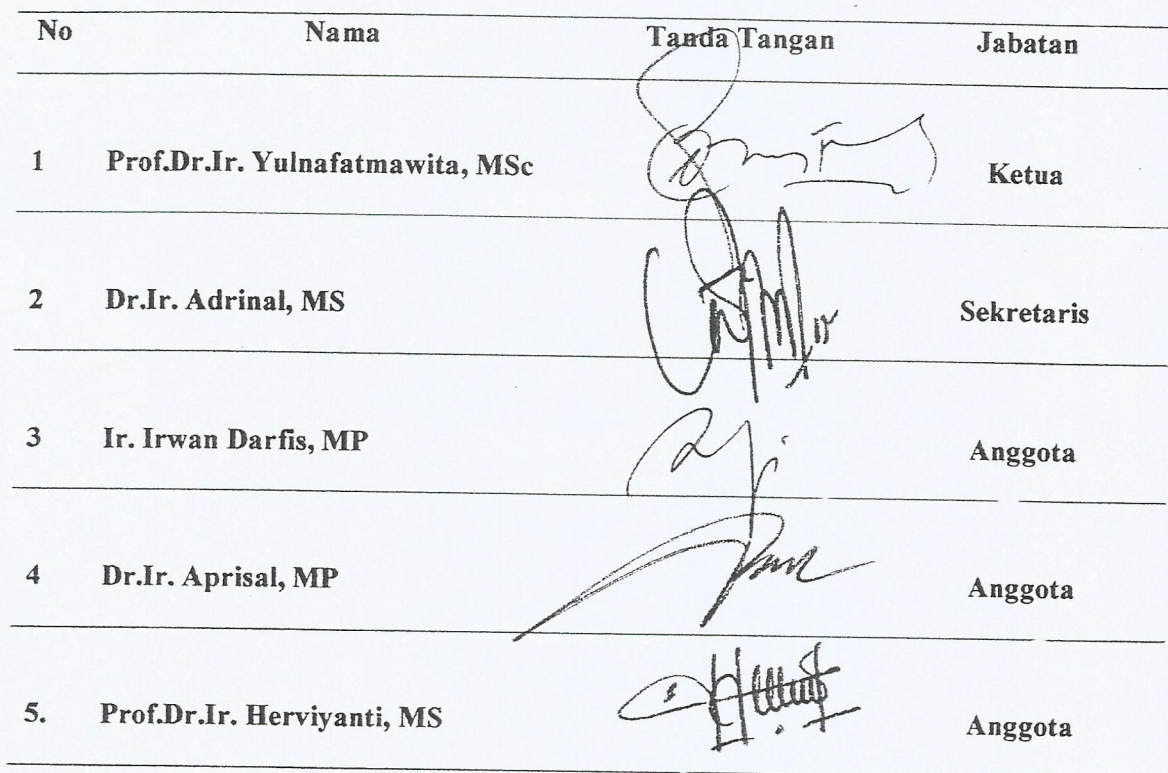 No Nama Tanda Tangan Jabatan
1 Prof.Dr.Ir. Yulnafatmawita, MSc Ketua
2 Dr.Ir. Adrinal, MS Sekretaris
3 Ir. Irwan Darfis, MP Anggota
4 Dr.Ir. Aprisal, MP Anggota
5. Prof.Dr.Ir. Herviyanti, MS Anggota